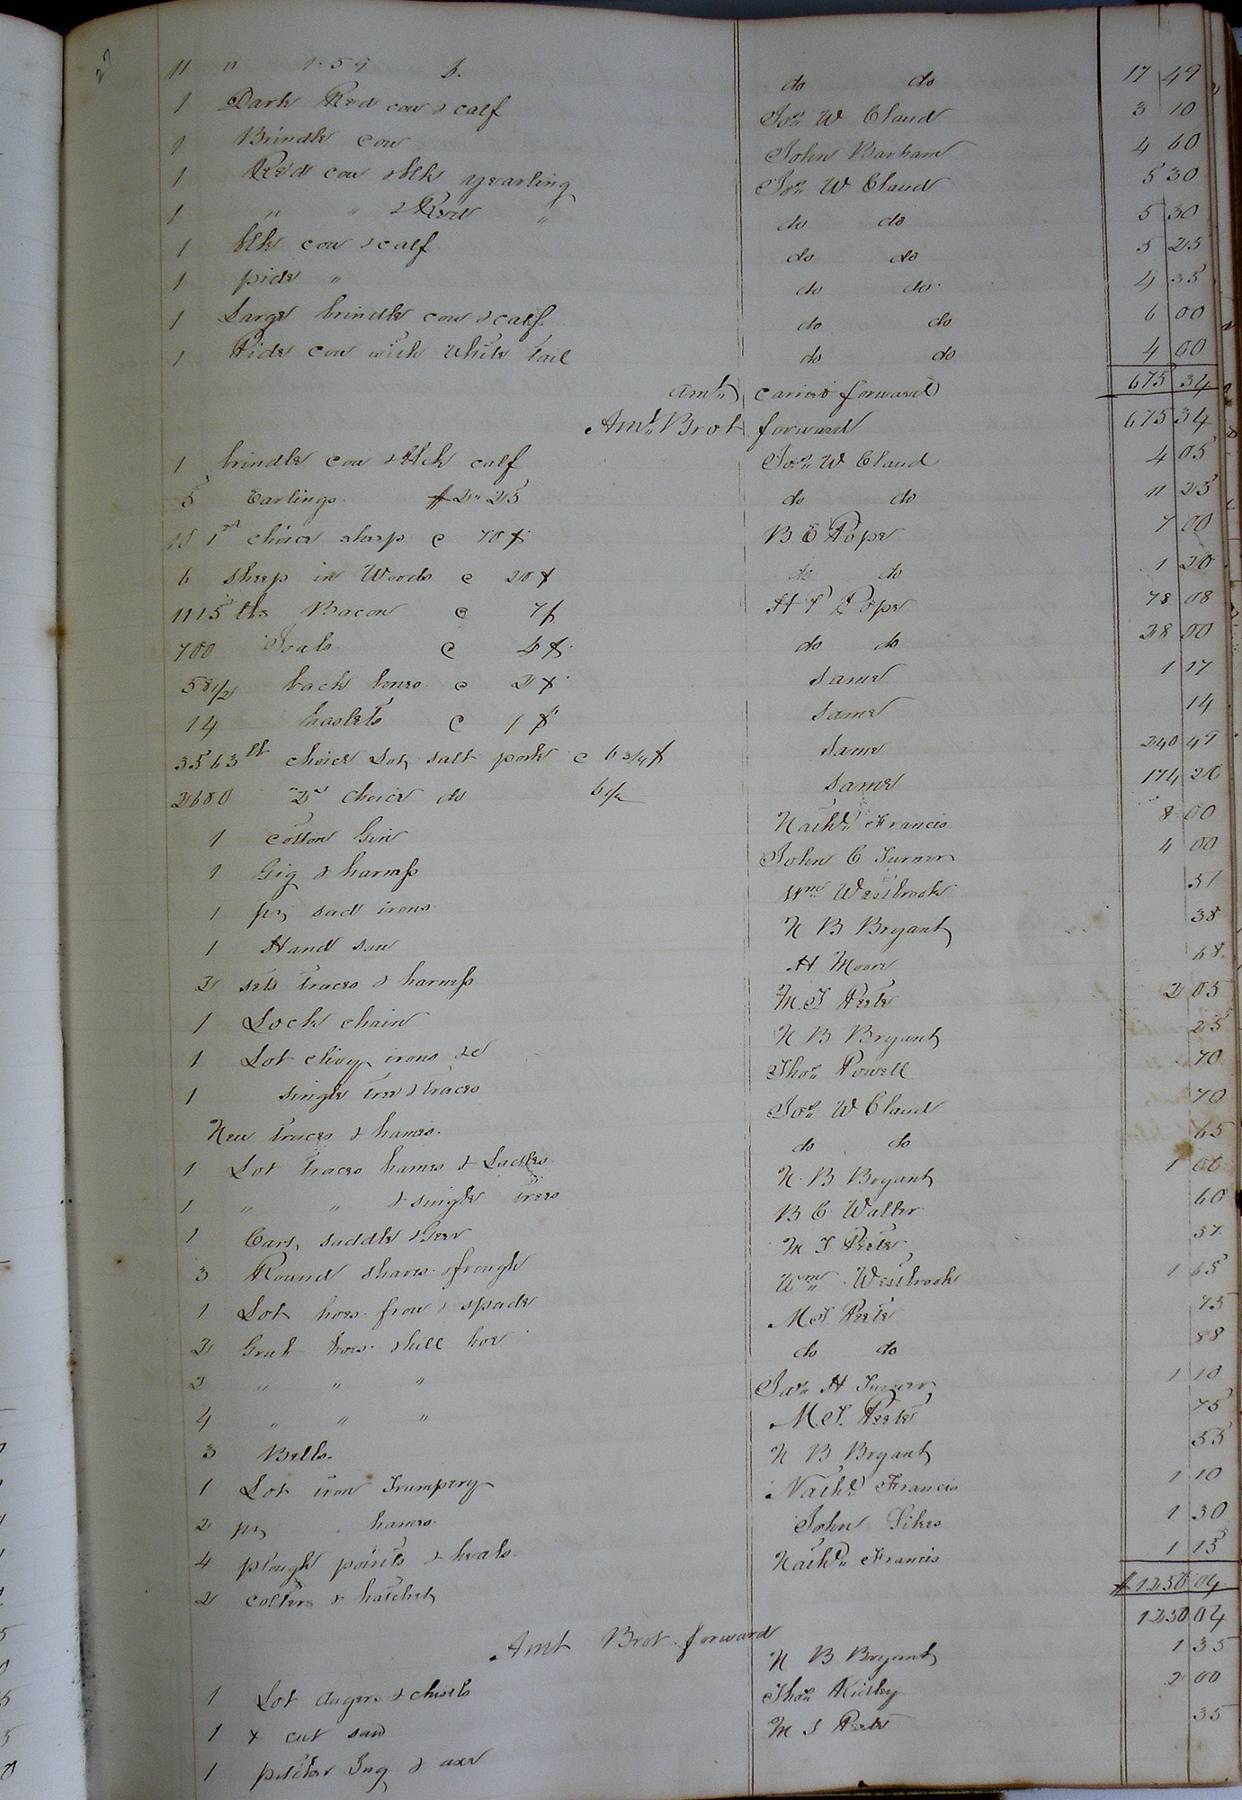 11 " 1.59 do do 17 49
1 Dark Red cow & calf Jos. W Claud 3 10
1 Brindle cow John Barham 4 60
1 Red cow & blk yearling Jos. W Claud 5 30
1 " " & Red " do do 5 30
1 blk cow & calf do do 5 25
1 pide " do do 4 35
1 Large brindle cow & calf do do 6 00
1 Pide cow with White tail do do 4 00
Amt. caried forward 675 34
Amt. Brot forward 675 34
1 brindle cow & blck calf Jos. W Claud 4 05
5 Earlings $2.. 25 do do 11 25
10 1st choice sheep @ 70 ¢ B E Pope 7 00
6 sheep in Woods @ 20 ¢ do do 1 20
1115 lbs Bacon @ 7¢ H P Pope 78 08
700 Joals @ 4 ¢ do do 28 00
58 1/2 back bones @ 2 ¢ same 1 17
14 haslets @ 1 ¢ same 14
3563 lb choice Lot salt pork @ 6 3/4 ¢ same 240 49
2680 2d choice do 6 1/2 same 174 20
1 cotton Gin Nathl. Francis 8 00
1 Gig & harness John C Turner 4 00
1 pr sad irons Wm Westbrook 51
1 Hand saw N B Bryant 38
2 sets traces & harness H Moore 68
1 Lock chain M. T Peete 2 05
1 Lot clivy irons &c N B Bryant 25
1 single tree & traces Thos. Powell 70
New traces & hames Jos. W Claud 70
1 Lot traces hames & Luckles do do 65
1 " " & single trees N. B Bryant 1 00
1 Cart, saddle & Geer B C Waller 60
3 Round shaves & frough M T Peete 37
1 Lot hoes frow & spade Wm Westbrook 1 65
2 Grub hoes & hill hoe M T Peete 75
2 " " " do do 88
4 " " " Jas. H Turner 1 10
3 Bells. M. T. Peete 75
1 Lot iron Trumpery N B Bryant 55
2 pr hames Nathl. Francis 1 10
4 plough points & heals John Sikes 1 30
2 colters & hatchet Nathl. Francis 1 15
$1250 04
Amt Brot forward 1250 04
1 Lot Augers & chisels N B Bryant 1 35
1 x cut saw Thos. Ridley 2 00
1 pitcher Jug & axe M T Peete 35